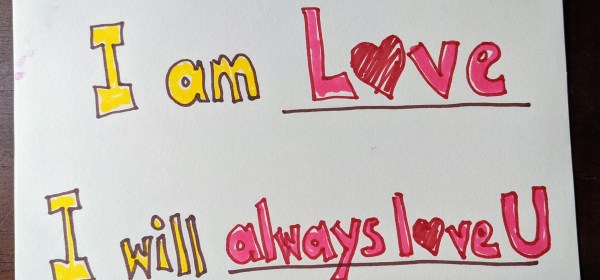 I am Love
I will always love U